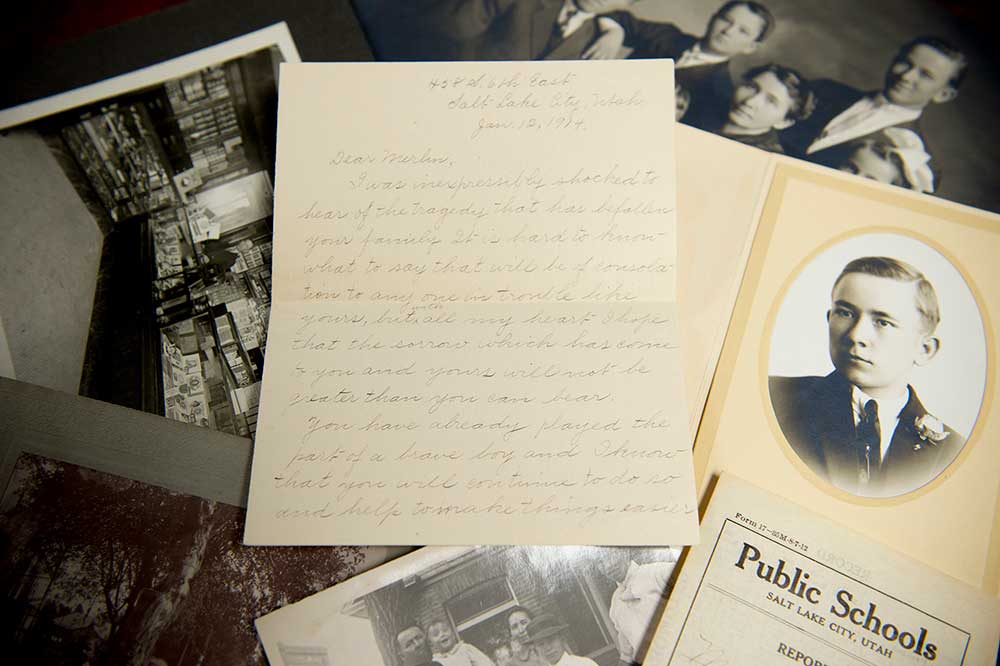 458 S. 6th East
Salt Lake City, Utah
Jan. 12, 1914.
Dear Merlin,
I was inexpressibly shocked to
hear of the tragedy that has befallen
your family. It is hard to know
what to say that will be of consola-
tion to any one in trouble like
yours, but with all my heart I hope
that the sorrow which has come
to you and yours will not be
greater than you can bear.
You have already played the
part of a brave boy and I know
that you will continue to do so
and help to make things easier
Form 17-35M-8-7-12
Public Schools
SALT LAKE CITY, UTAH
REPOR